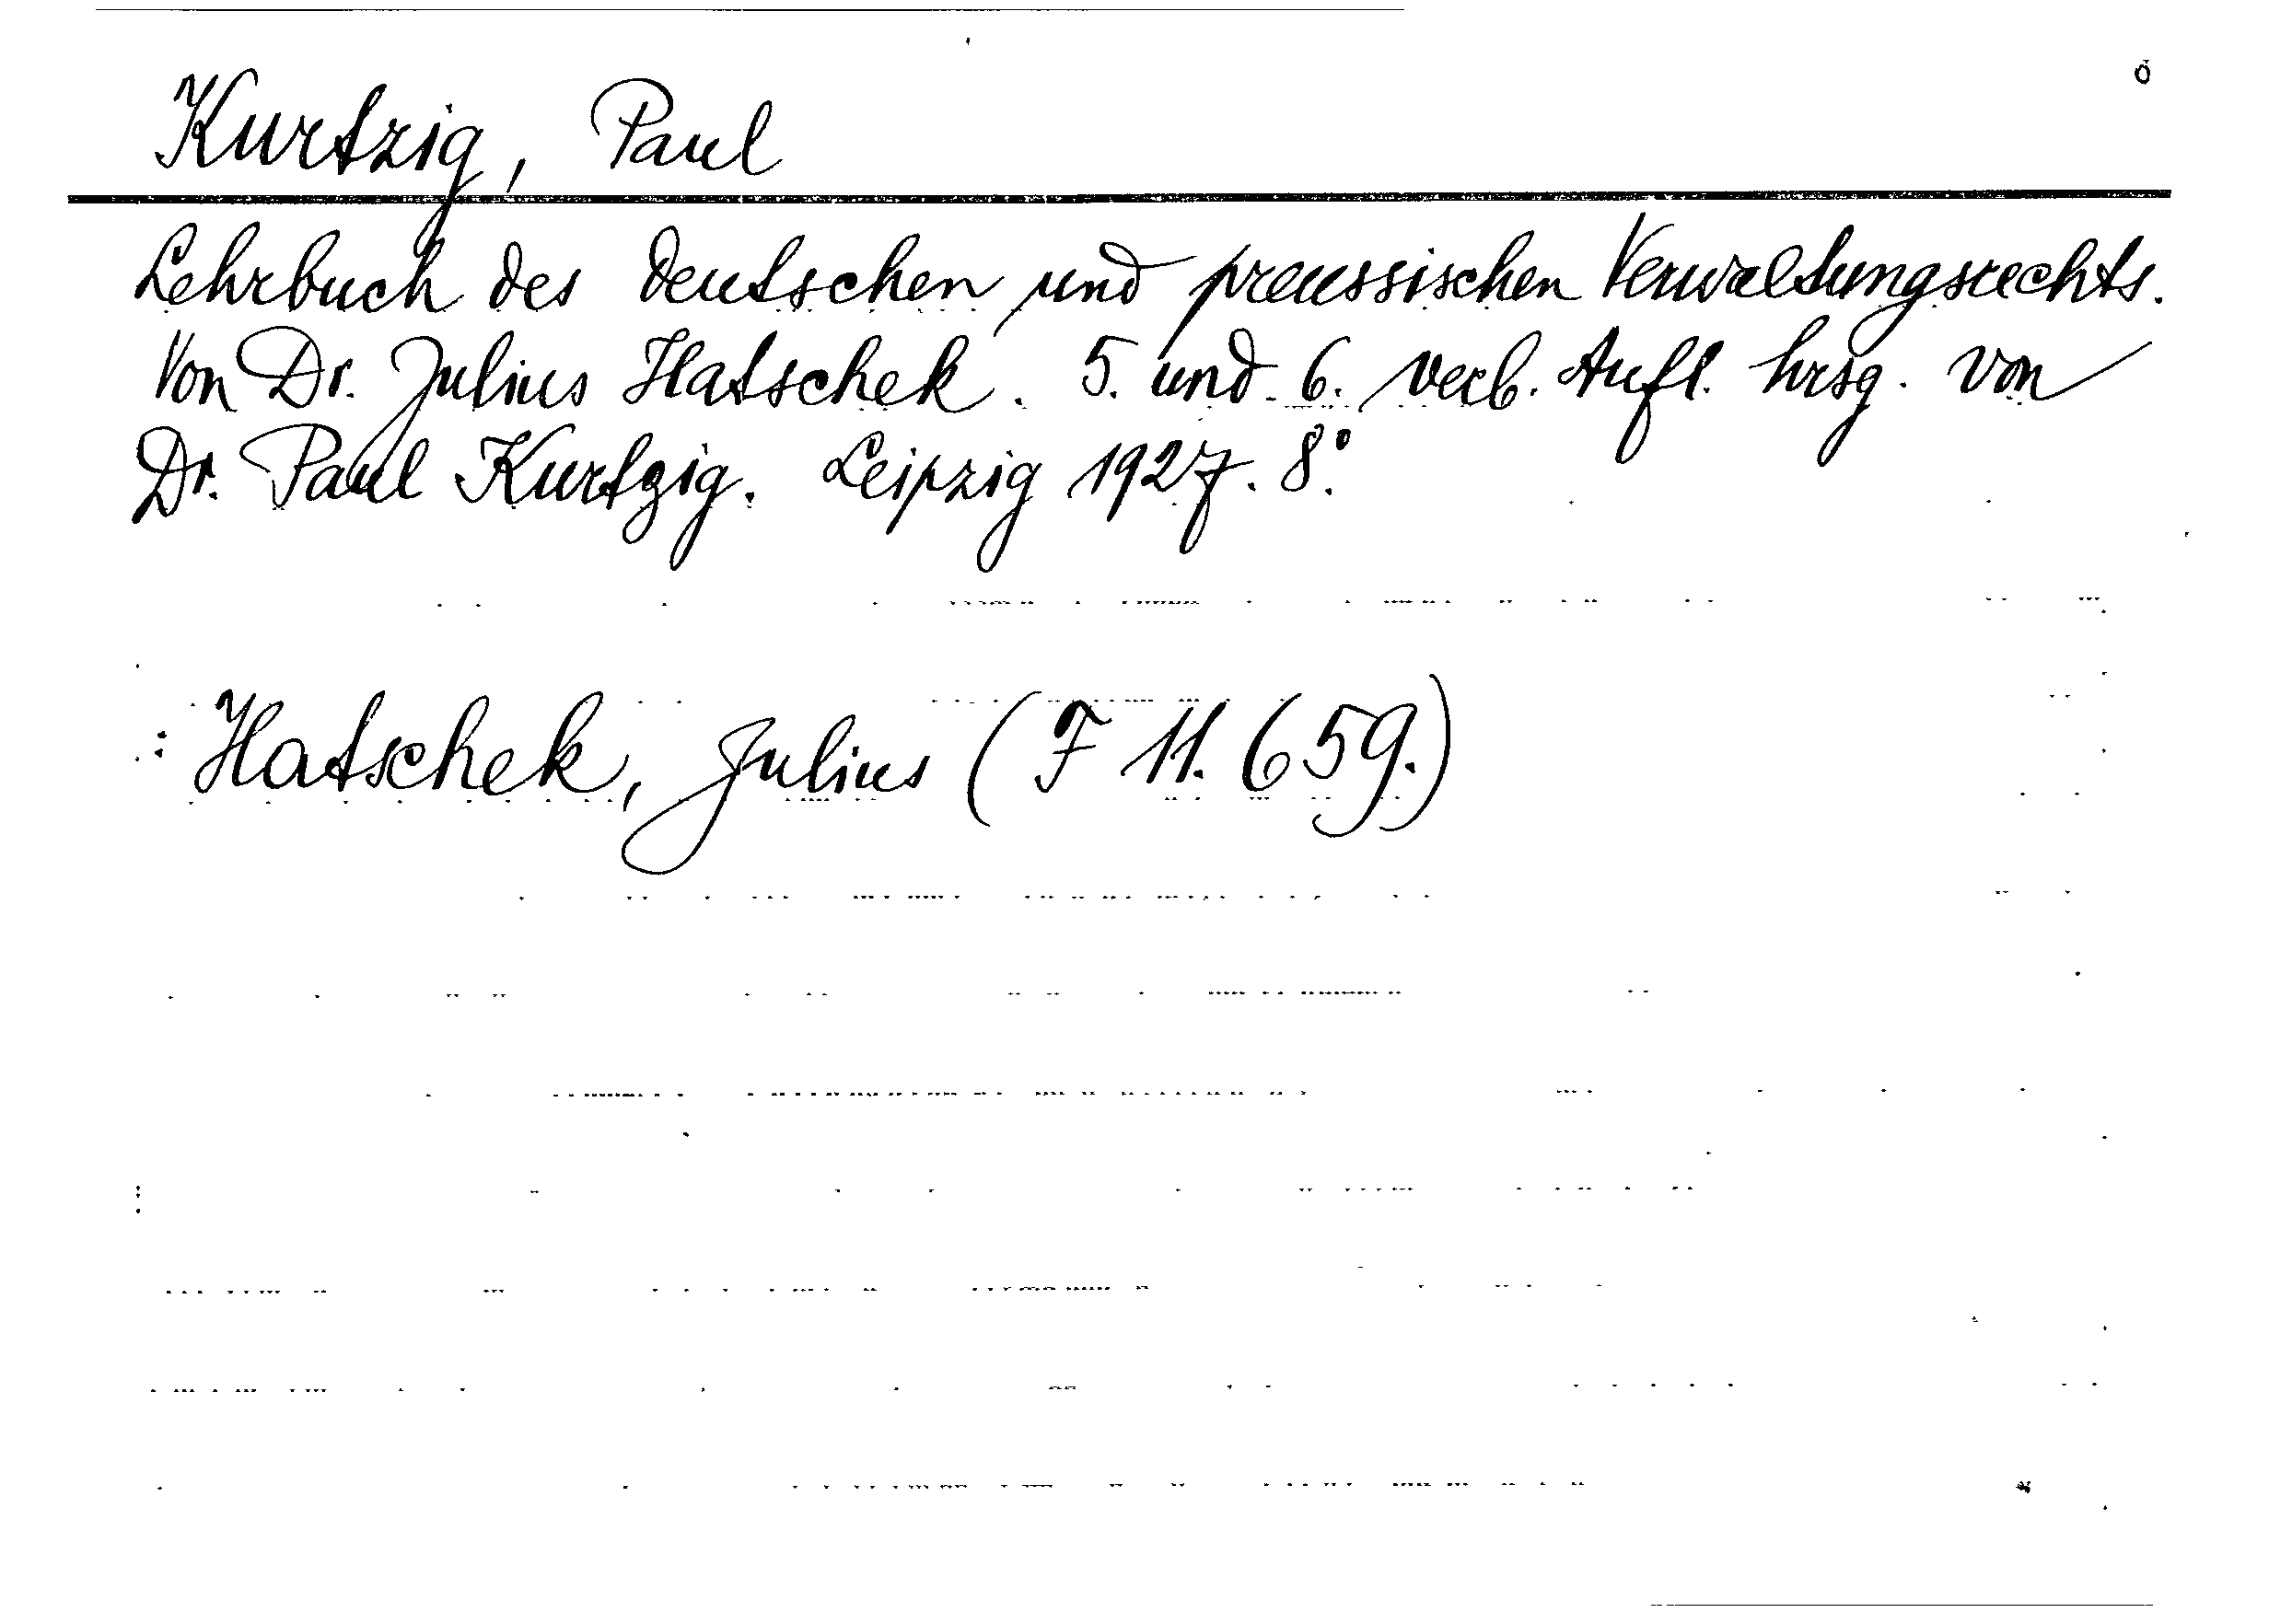 Kurtzig, Paul
Lehrbuch des deutschen und preussischen Verwaltungsrechts.
Von Dr. Julius Hatschek. 5. und 6. verb. Aufl. hrsg. von
Dr. Paul Kurtzig. Leipzig 1927. 8°.
: Hatschek, Julius (F 11.659.)